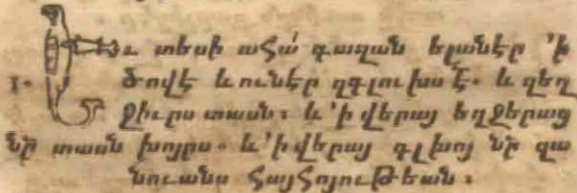 Եւ տեսի ահա՛ գազան ելանէր ՚ի
1. ծովէ և ունէր զգլուխս է. և զեղ
ջիւրս տասն։ և ՚ի վերայ եղջերաց
նր տասն խոյրս. և ՚ի վերայ գլխոյ նր զա
նուանս հայհոյութեան։